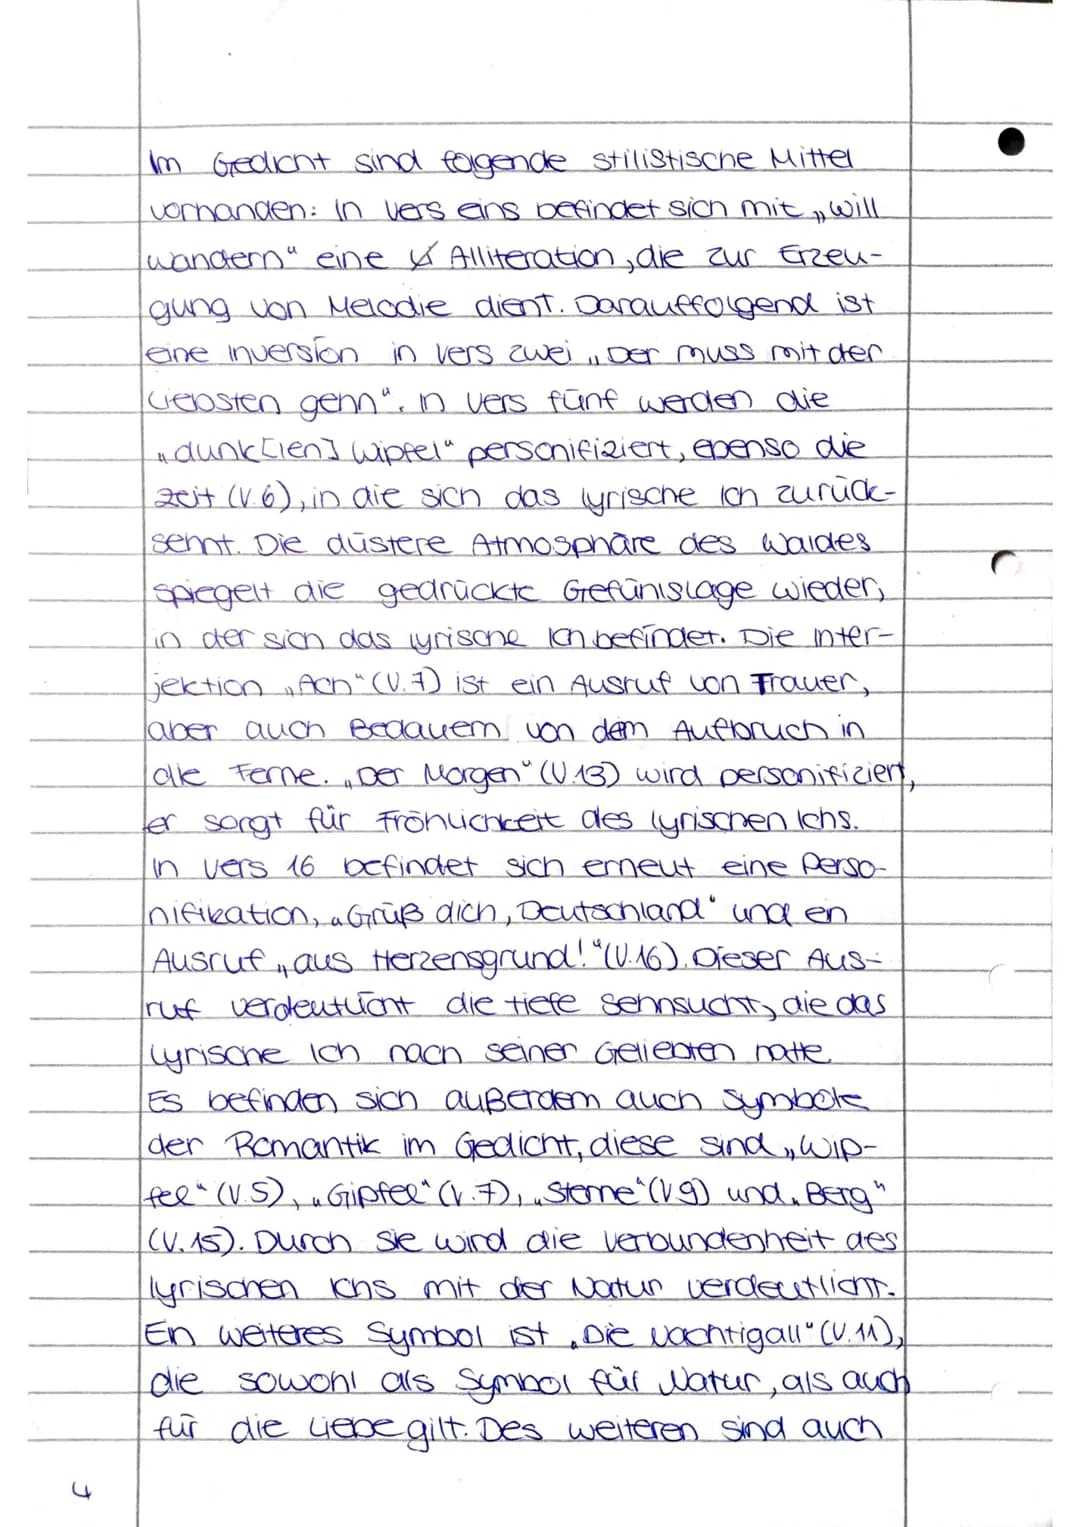 Im Gedicht sind folgende stilistische Mittel
vorhanden: In Vers eins befindet sich mit „will
wandern" eine Alliteration, die zur Erzeu-
gung von Melodie dient. Darauffolgend ist
eine Inversion in Vers zwei „Der muss mit der
Liebsten gehn". In Vers fünf werden die
„dunk[len] Wipfel" personifiziert, ebenso die
Zeit (V.6), in die sich das lyrische Ich zurück-
sehnt. Die düstere Atmosphäre des Waldes
spiegelt die gedrückte Gefühlslage wieder,
in der sich das lyrische Ich befindet. Die Inter-
jektion „Ach" (V.7) ist ein Ausruf von Trauer,
aber auch Bedauern von dem Aufbruch in
die Ferne. „Der Morgen" (V.13) wird personifiziert,
er sorgt für Fröhlichkeit des lyrischen Ichs.
In Vers 16 befindet sich erneut eine Perso-
nifikation, „Grüß dich, Deutschland" und ein
Ausruf „aus Herzensgrund!" (V.16). Dieser Aus-
ruf verdeutlicht die tiefe Sehnsucht, die das
lyrische Ich nach seiner Geliebten hatte
Es befinden sich außerdem auch Symbole
der Romantik im Gedicht, diese sind „Wip-
fel" (V.5), „Gipfel" (V.7), „Sterne" (V.9) und „Berg"
(V.15). Durch sie wird die Verbundenheit des
lyrischen Ichs mit der Natur verdeutlicht.
Ein weiteres Symbol ist „Die Nachtigall" (V.11),
die sowohl als Symbol für Natur, als auch
für die Liebe gilt. Des weiteren sind auch
4